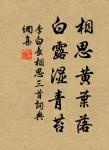 相思黄葉落
白露湿青苔
李白長相思三首詞典
網集